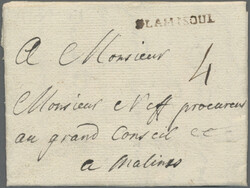 A Monsieur
4
Monsieur Neff procureur
au grand Conseil
a Malines